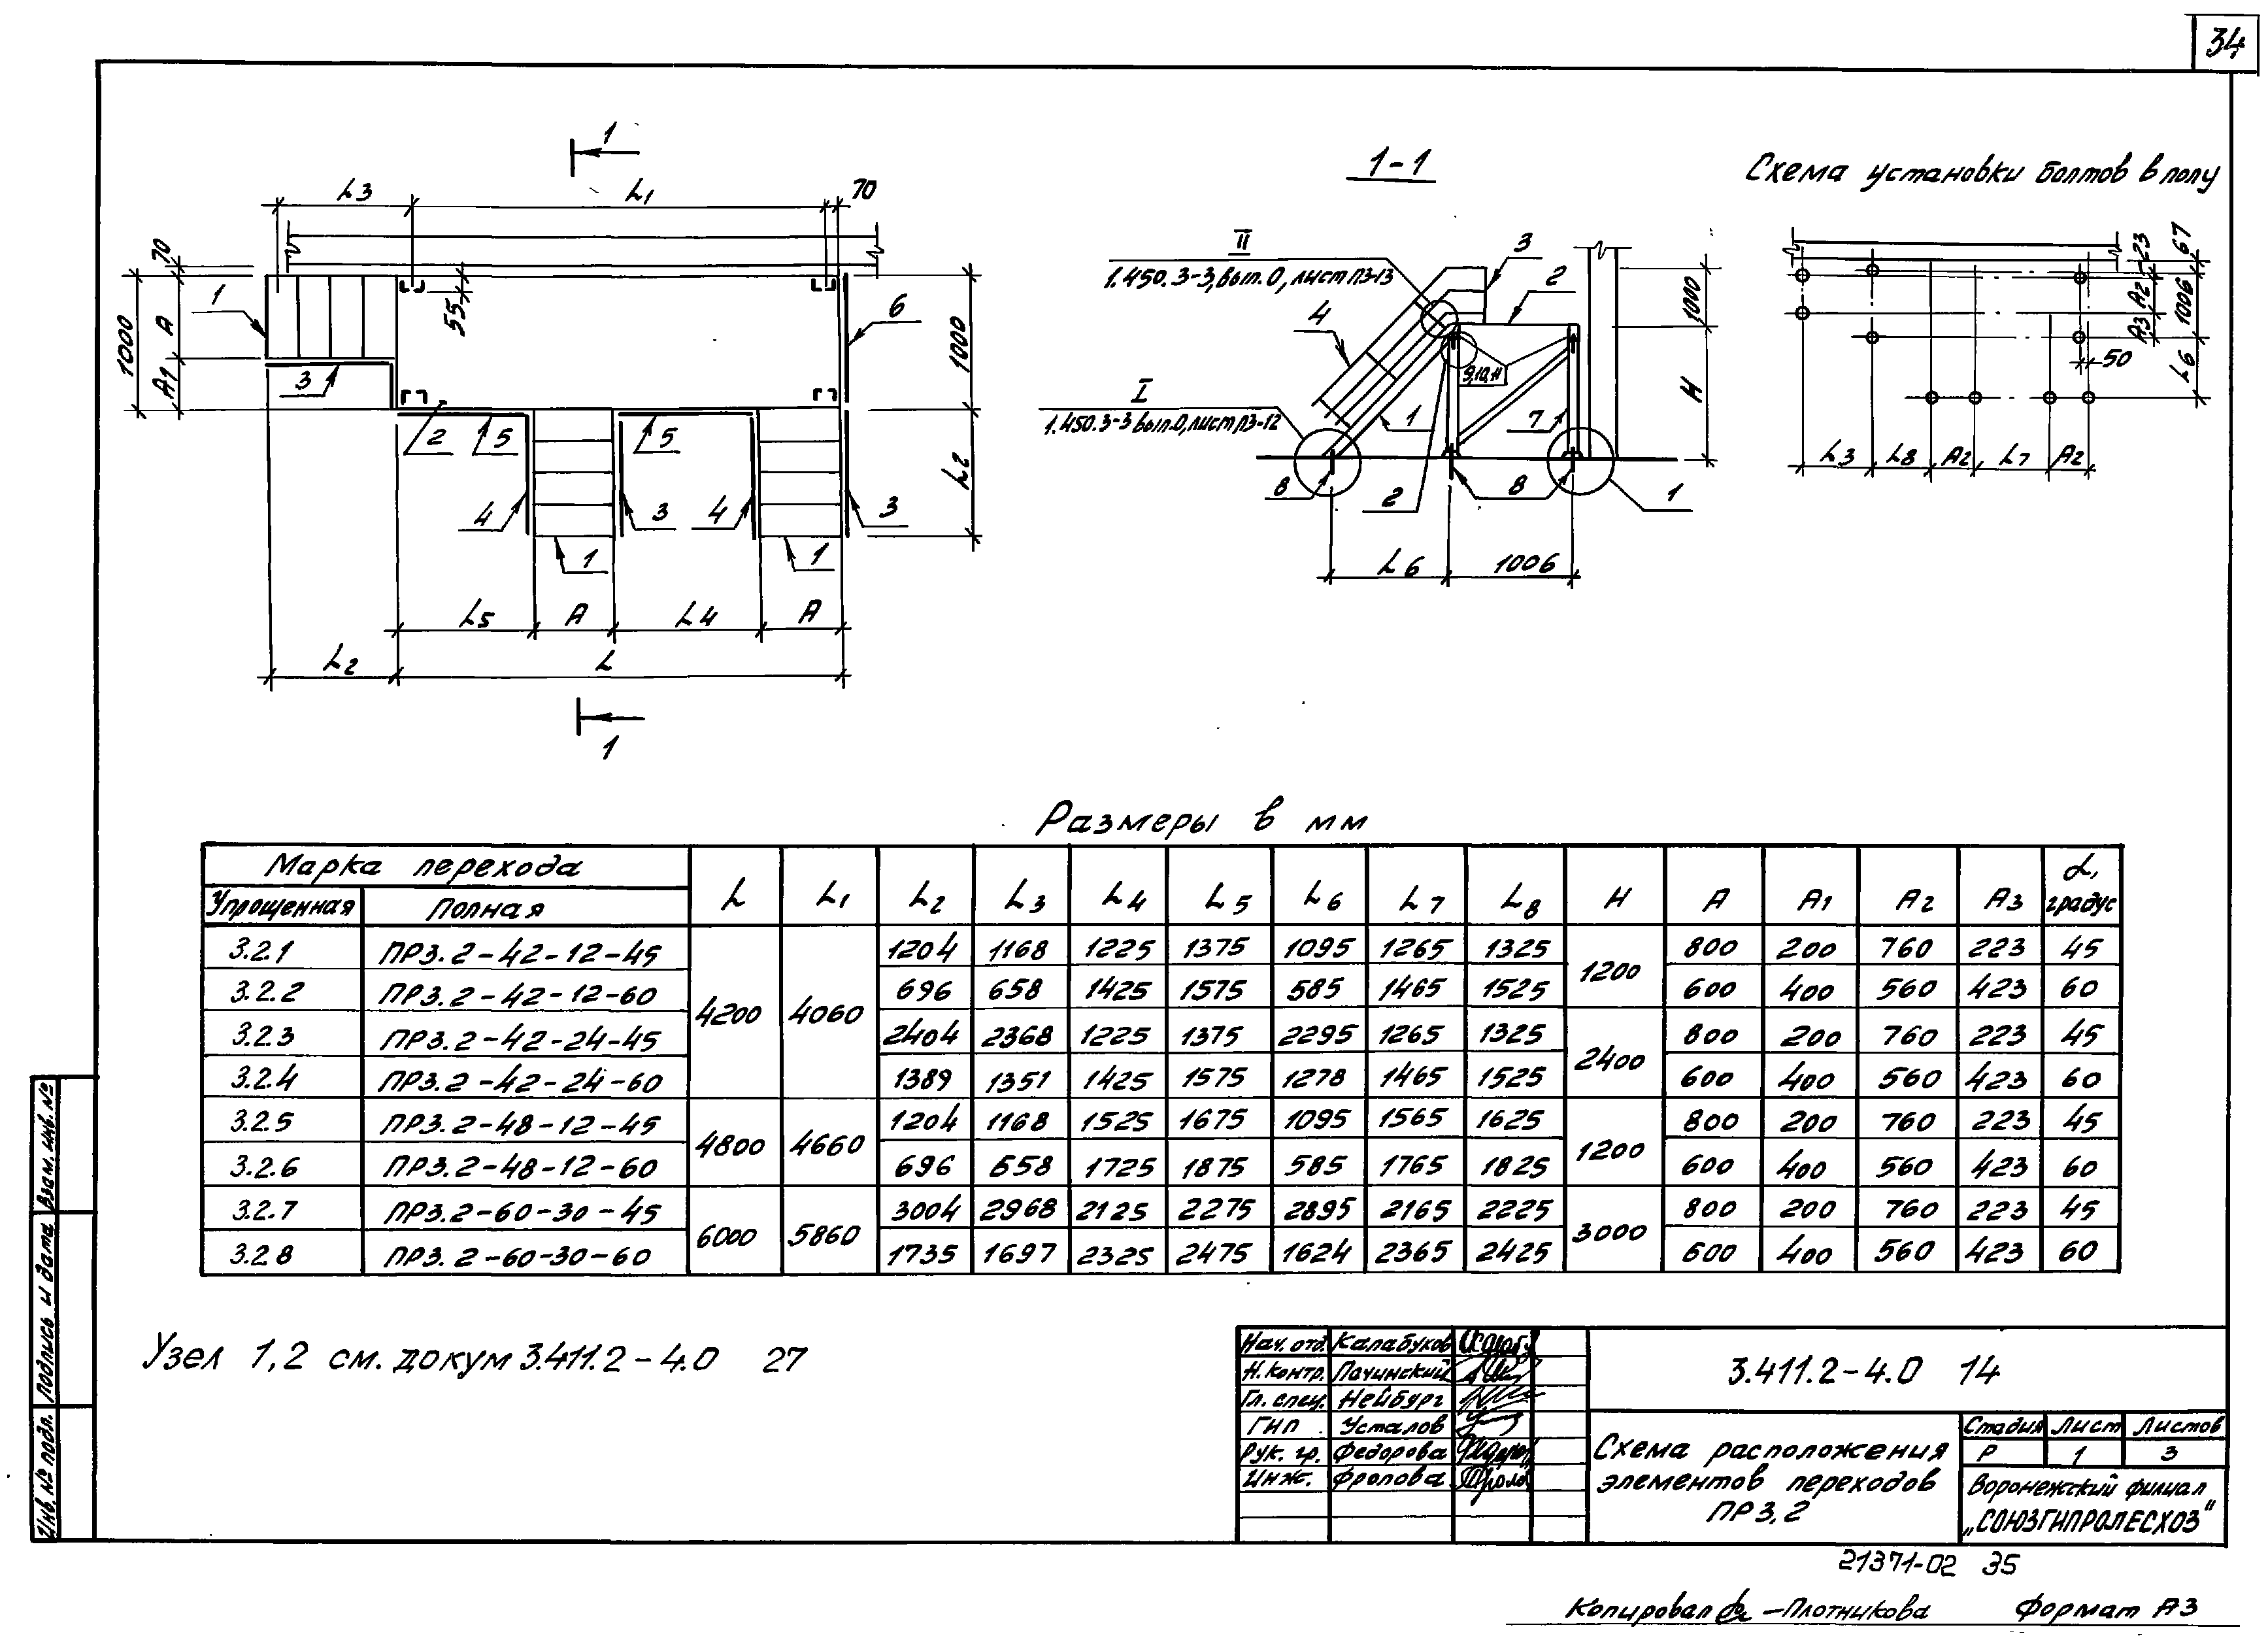 34
1
L3
L1
70
70
1000
A
A1
1
3
55
6
1000
L2
2
5
5
4
3
4
3
1
1
L5
A
L4
A
L2
L
1
1-1
II
1.450.3-3, вып.0, лист П3-13
3
2
4
1000
9,10,11
I
1.450.3-3 вып.0, лист П3-12
1
7
H
8
2
8
1
L6
1006
Схема установки болтов в полу
223
67
A2
1006
A3
50
L6
L3
L8
A2
L7
A2
Размеры в мм
Марка перехода L L1 L2 L3 L4 L5 L6 L7 L8 H A A1 A2 A3 α, градус
Упрощенная Полная
3.2.1 ПР3.2-42-12-45 4200 4060 1204 1168 1225 1375 1095 1265 1325 1200 800 200 760 223 45
3.2.2 ПР3.2-42-12-60 696 658 1425 1575 585 1465 1525 600 400 560 423 60
3.2.3 ПР3.2-42-24-45 2404 2368 1225 1375 2295 1265 1325 2400 800 200 760 223 45
3.2.4 ПР3.2-42-24-60 1389 1351 1425 1575 1278 1465 1525 600 400 560 423 60
3.2.5 ПР3.2-48-12-45 4800 4660 1204 1168 1525 1675 1095 1565 1625 1200 800 200 760 223 45
3.2.6 ПР3.2-48-12-60 696 658 1725 1875 585 1765 1825 600 400 560 423 60
3.2.7 ПР3.2-60-30-45 6000 5860 3004 2968 2125 2275 2895 2165 2225 3000 800 200 760 223 45
3.2.8 ПР3.2-60-30-60 1735 1697 2325 2475 1624 2365 2425 600 400 560 423 60
Узел 1,2 см. докум 3.411.2-4.0 27
Взам. инв. №
Подпись и дата
Инв. № подл.
Нач. отд. Калабухов
Н. контр. Пачинский
Гл. спец. Нейбург
ГИП Усталов
Рук. гр. Федорова
Инж. Фролова
3.411.2-4.0 14
Схема расположения
элементов переходов
ПР3.2
Стадия Лист Листов
Р 1 3
Воронежский филиал
„СОЮЗГИПРОЛЕСХОЗ"
21371-02 35
Копировал - Плотникова Формат А3